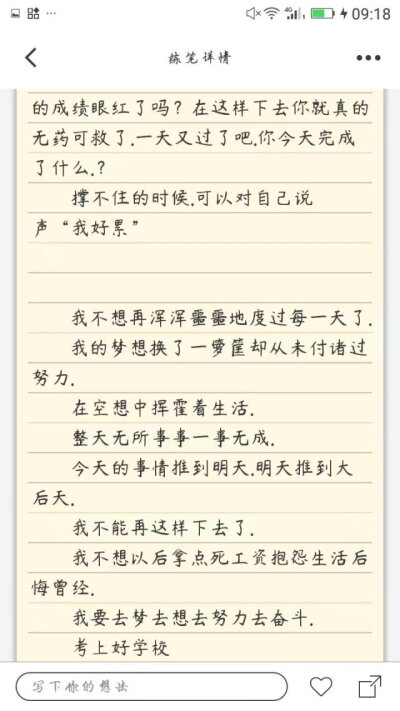 09:18
练笔详情
的成绩眼红了吗？在这样下去你就真的
无药可救了.一天又过了吧.你今天完成
了什么.？
撑不住的时候.可以对自己说
声“我好累”
我不想再浑浑噩噩地度过每一天了.
我的梦想换了一箩筐却从未付诸过
努力.
在空想中挥霍着生活.
整天无所事事一事无成.
今天的事情推到明天.明天推到大
后天.
我不能再这样下去了.
我不想以后拿点死工资抱怨生活后
悔曾经.
我要去梦去想去努力去奋斗.
考上好学校
写下你的想法